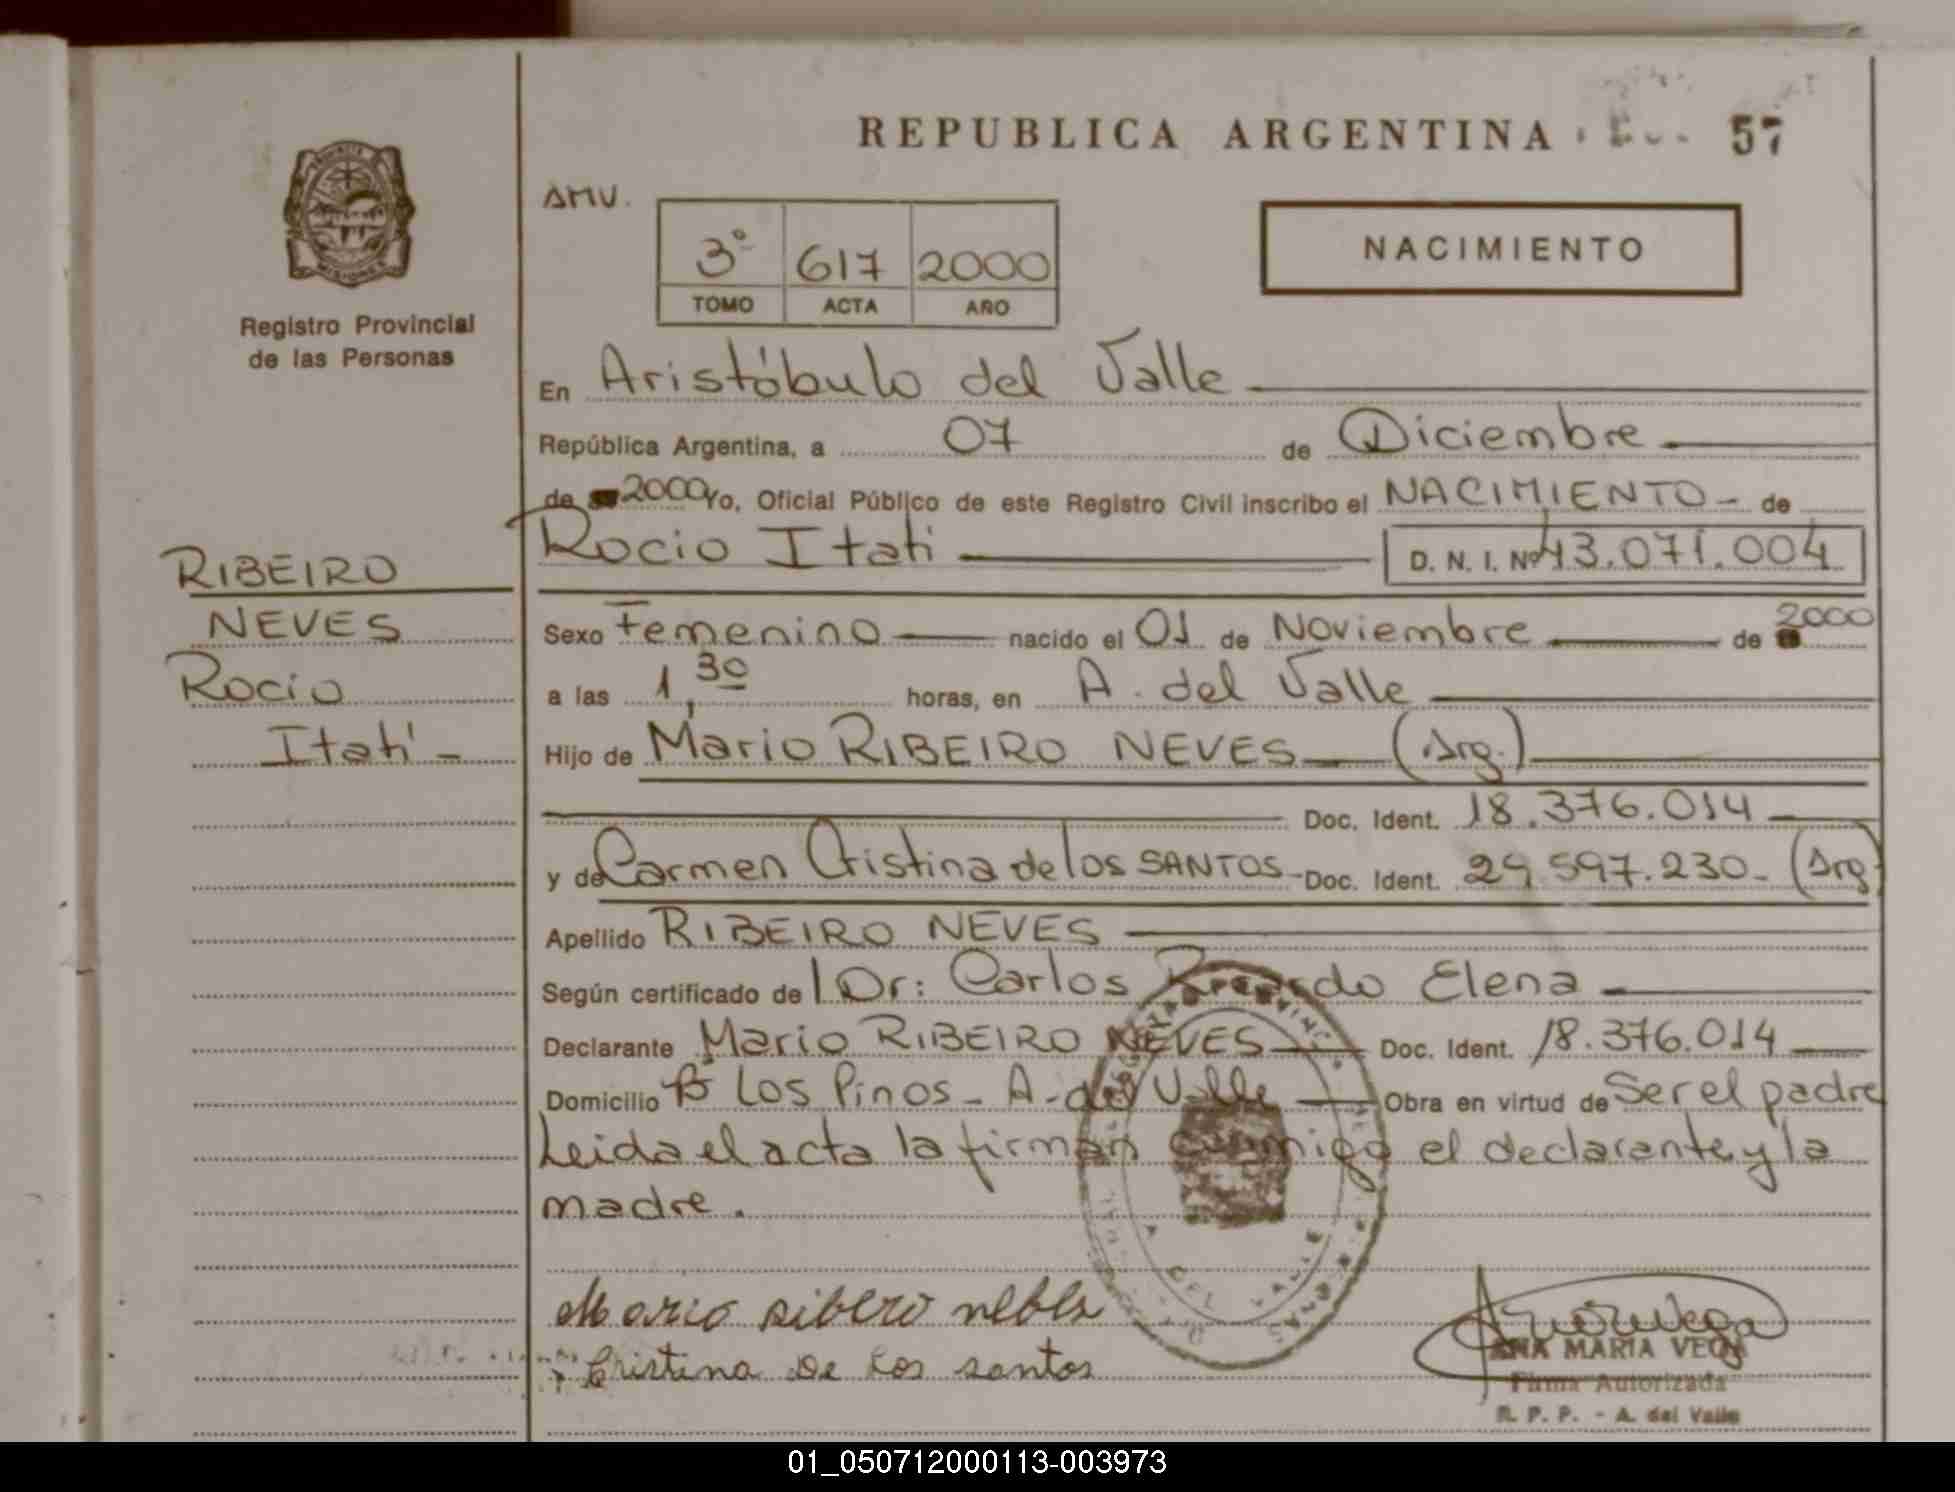 REPUBLICA ARGENTINA
57
AMV.
3º 617 2000
TOMO ACTA AÑO
NACIMIENTO
MISIONES
Registro Provincial
de las Personas
En Aristóbulo del Valle
República Argentina, a 07 de Diciembre
de 2000 Yo, Oficial Público de este Registro Civil inscribo el NACIMIENTO - de
Rocio Itati D. N. I. Nº 43.071.004
RIBEIRO
NEVES
Rocio
Itatí -
Sexo Femenino nacido el 01 de Noviembre de 2000
a las 1,30 horas, en A. del Valle
Hijo de Mario RIBEIRO NEVES (Arg.)
Doc. Ident. 18.376.014
y de Carmen Cristina de los SANTOS - Doc. Ident. 29.597.230 - (Arg)
Apellido RIBEIRO NEVES
Según certificado de Dr: Carlos Elena
Declarante Mario RIBEIRO NEVES Doc. Ident. 18.376.014
Domicilio Bº Los Pinos - A. del Valle Obra en virtud de Ser el padre
Leida el acta la firman conmigo el declarante y la
madre.
A. DEL VALLE
Mario
Cristina De Los santos
ANA MARIA VEGA
Firma Autorizada
R. P. P. - A. del Valle
01_050712000113-003973